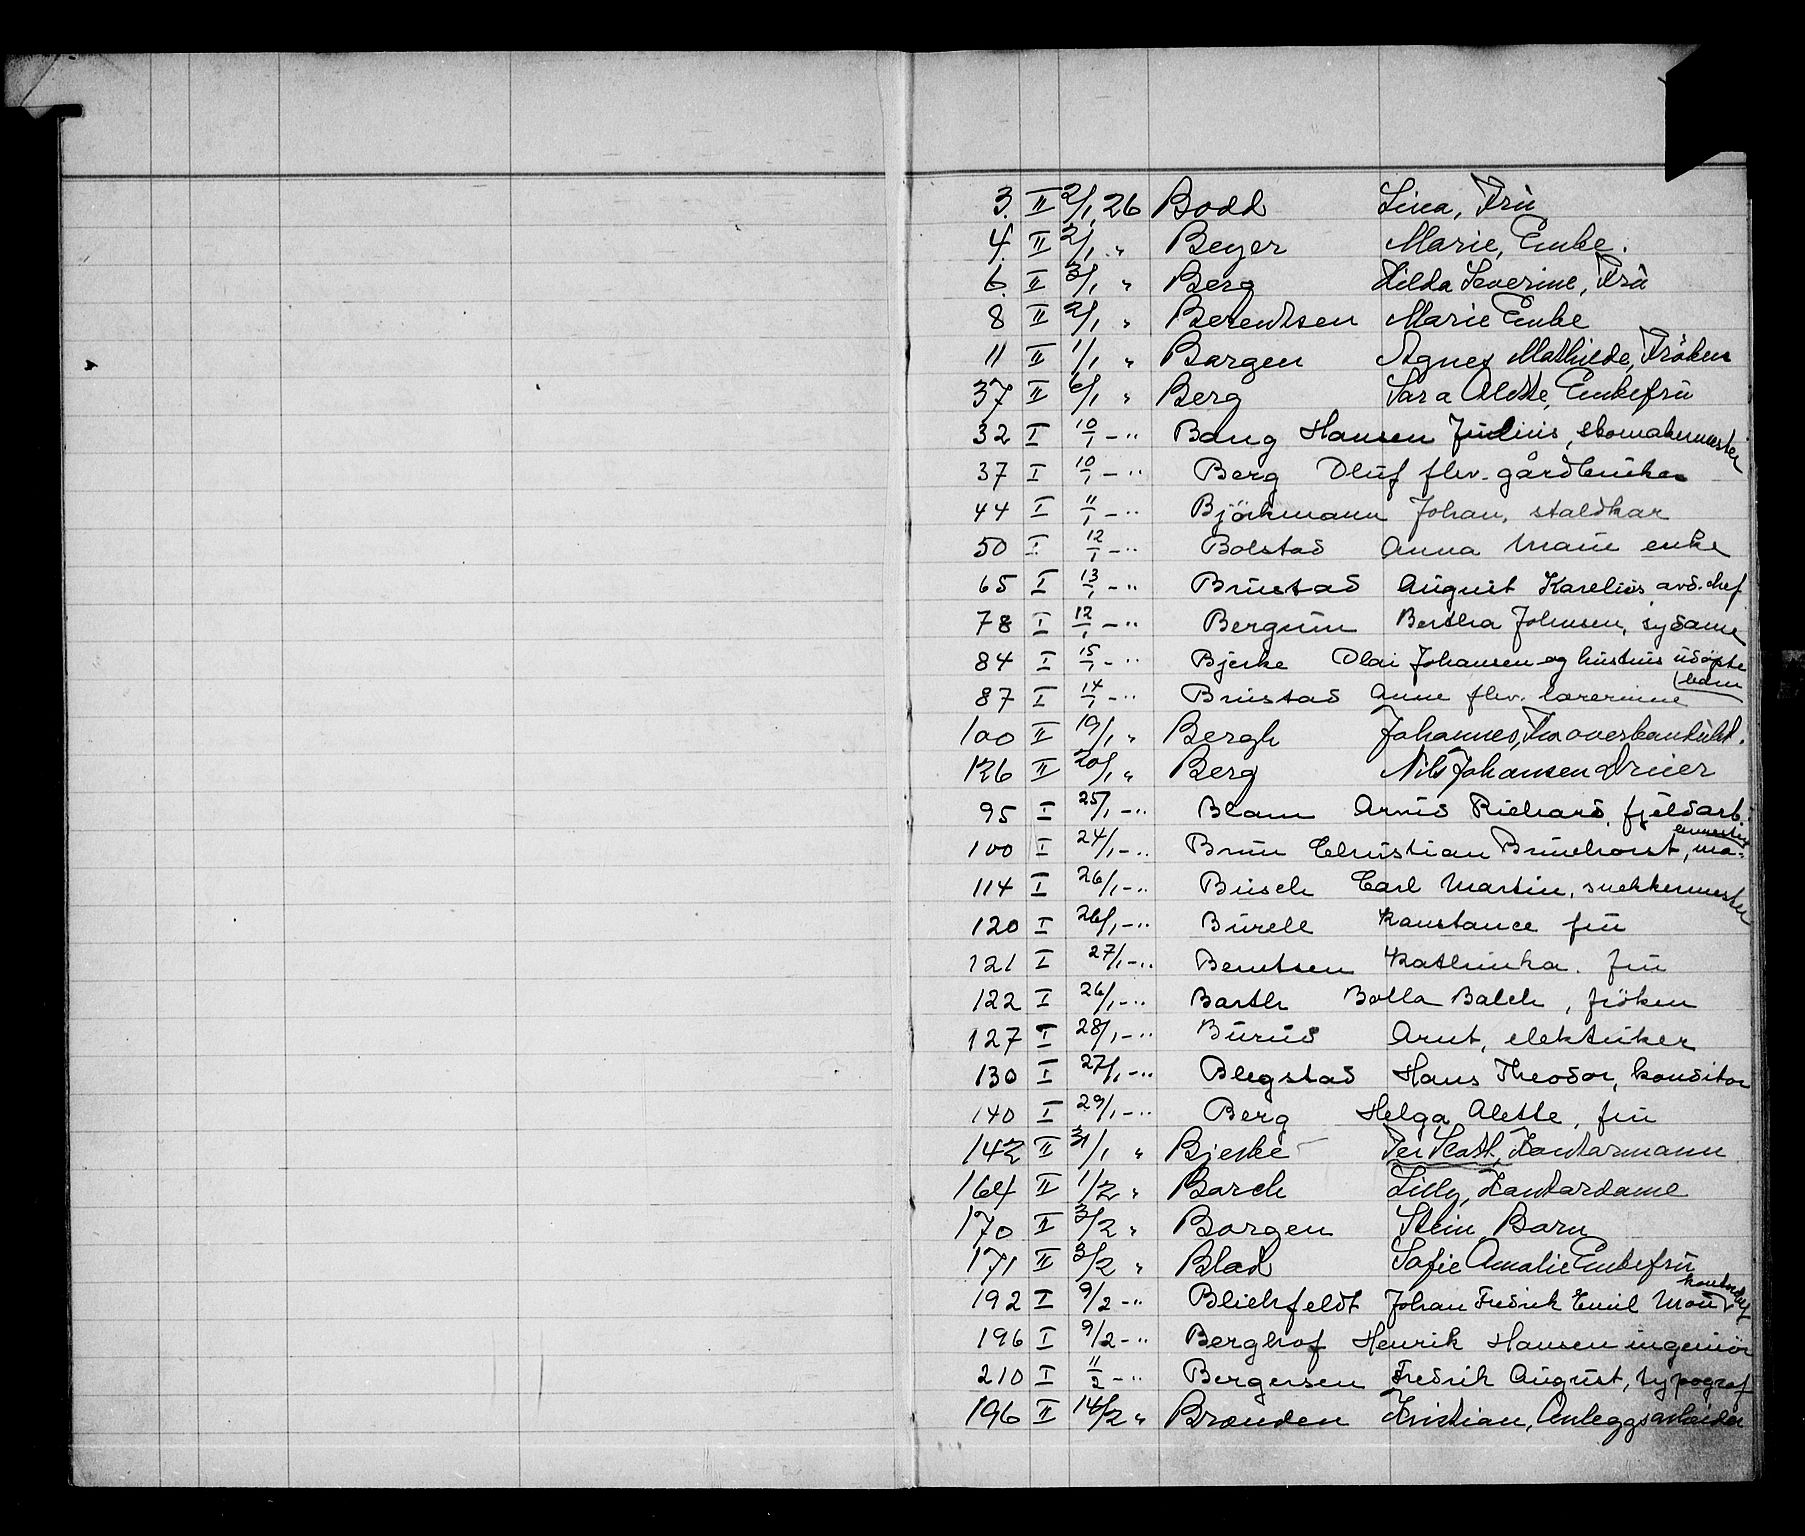 3. II 2/1 26 Bodd Lina, Frü
4. II 2/1 " Beyer Marie, Enke.
6. II 3/1 " Berg Hilda Severine, Frü
8 II 2/1 " Berentsen Marie Enke
11 II 1/1 " Borgen Agnes Mathilde, Fröken
37 II 6/1 " Berg Sara Alette, Enkefrü
32 I 10/1 - " Bang Hansen Julius, skomakermester
37 I 10/1 - " Berg Oluf flv. gårdbruker
44 I 11/1 - " Björkmann Johan, staldkar
50 I 12/1 - " Bolstad Anna Marie enke
65 I 13/1 - " Brustad August Karelius avd. chef
78 I 12/1 - " Bergum Bertha Johnsen, sydame
84 I 15/1 - " Bjerke Olai Johansen og hustrus udøpte barn
87 I 14/1 - " Brustad Anne flv. lærerinne
100 II 19/1 " Bergh Johannes,
126 II 20/1 " Berg Nils Johansen Dreier
95 I 25/1 - " Blam Arvid Richard, fjeldarb.
100 I 24/1 - " Brun Christian Bruchorst,
114 I 26/1 - " Busch Carl Martin, snekkermester
120 I 26/1 - " Burell Konstance fru
121 I 27/1 - " Berntsen Kathinka. fru
122 I 26/1 - " Barth Bolla Balch, fröken
127 I 28/1 - " Burud Arnt, elektriker
130 I 27/1 - " Blegstad Hans Theodor, konditor
140 I 29/1 - " Berg Helga Alette, fru
142 II 31/1 " Bjerke Per Skott, Kontormann
164 II 1/2 " Borch Lilly, Kontordame
170 II 3/2 " Borgen Stein, Barn
171 II 3/2 " Blad Sofie Amalie Enkefrü
192 I 9/2 - " Blichfeldt Johan Fredrik Emil
196 I 9/2 - " Berghof Henrik Hansen ingeniör
210 I 11/2 - " Bergersen Fredrik August, typograf
196 II 14/2 " Brænden Kristian, Anleggsarbeider